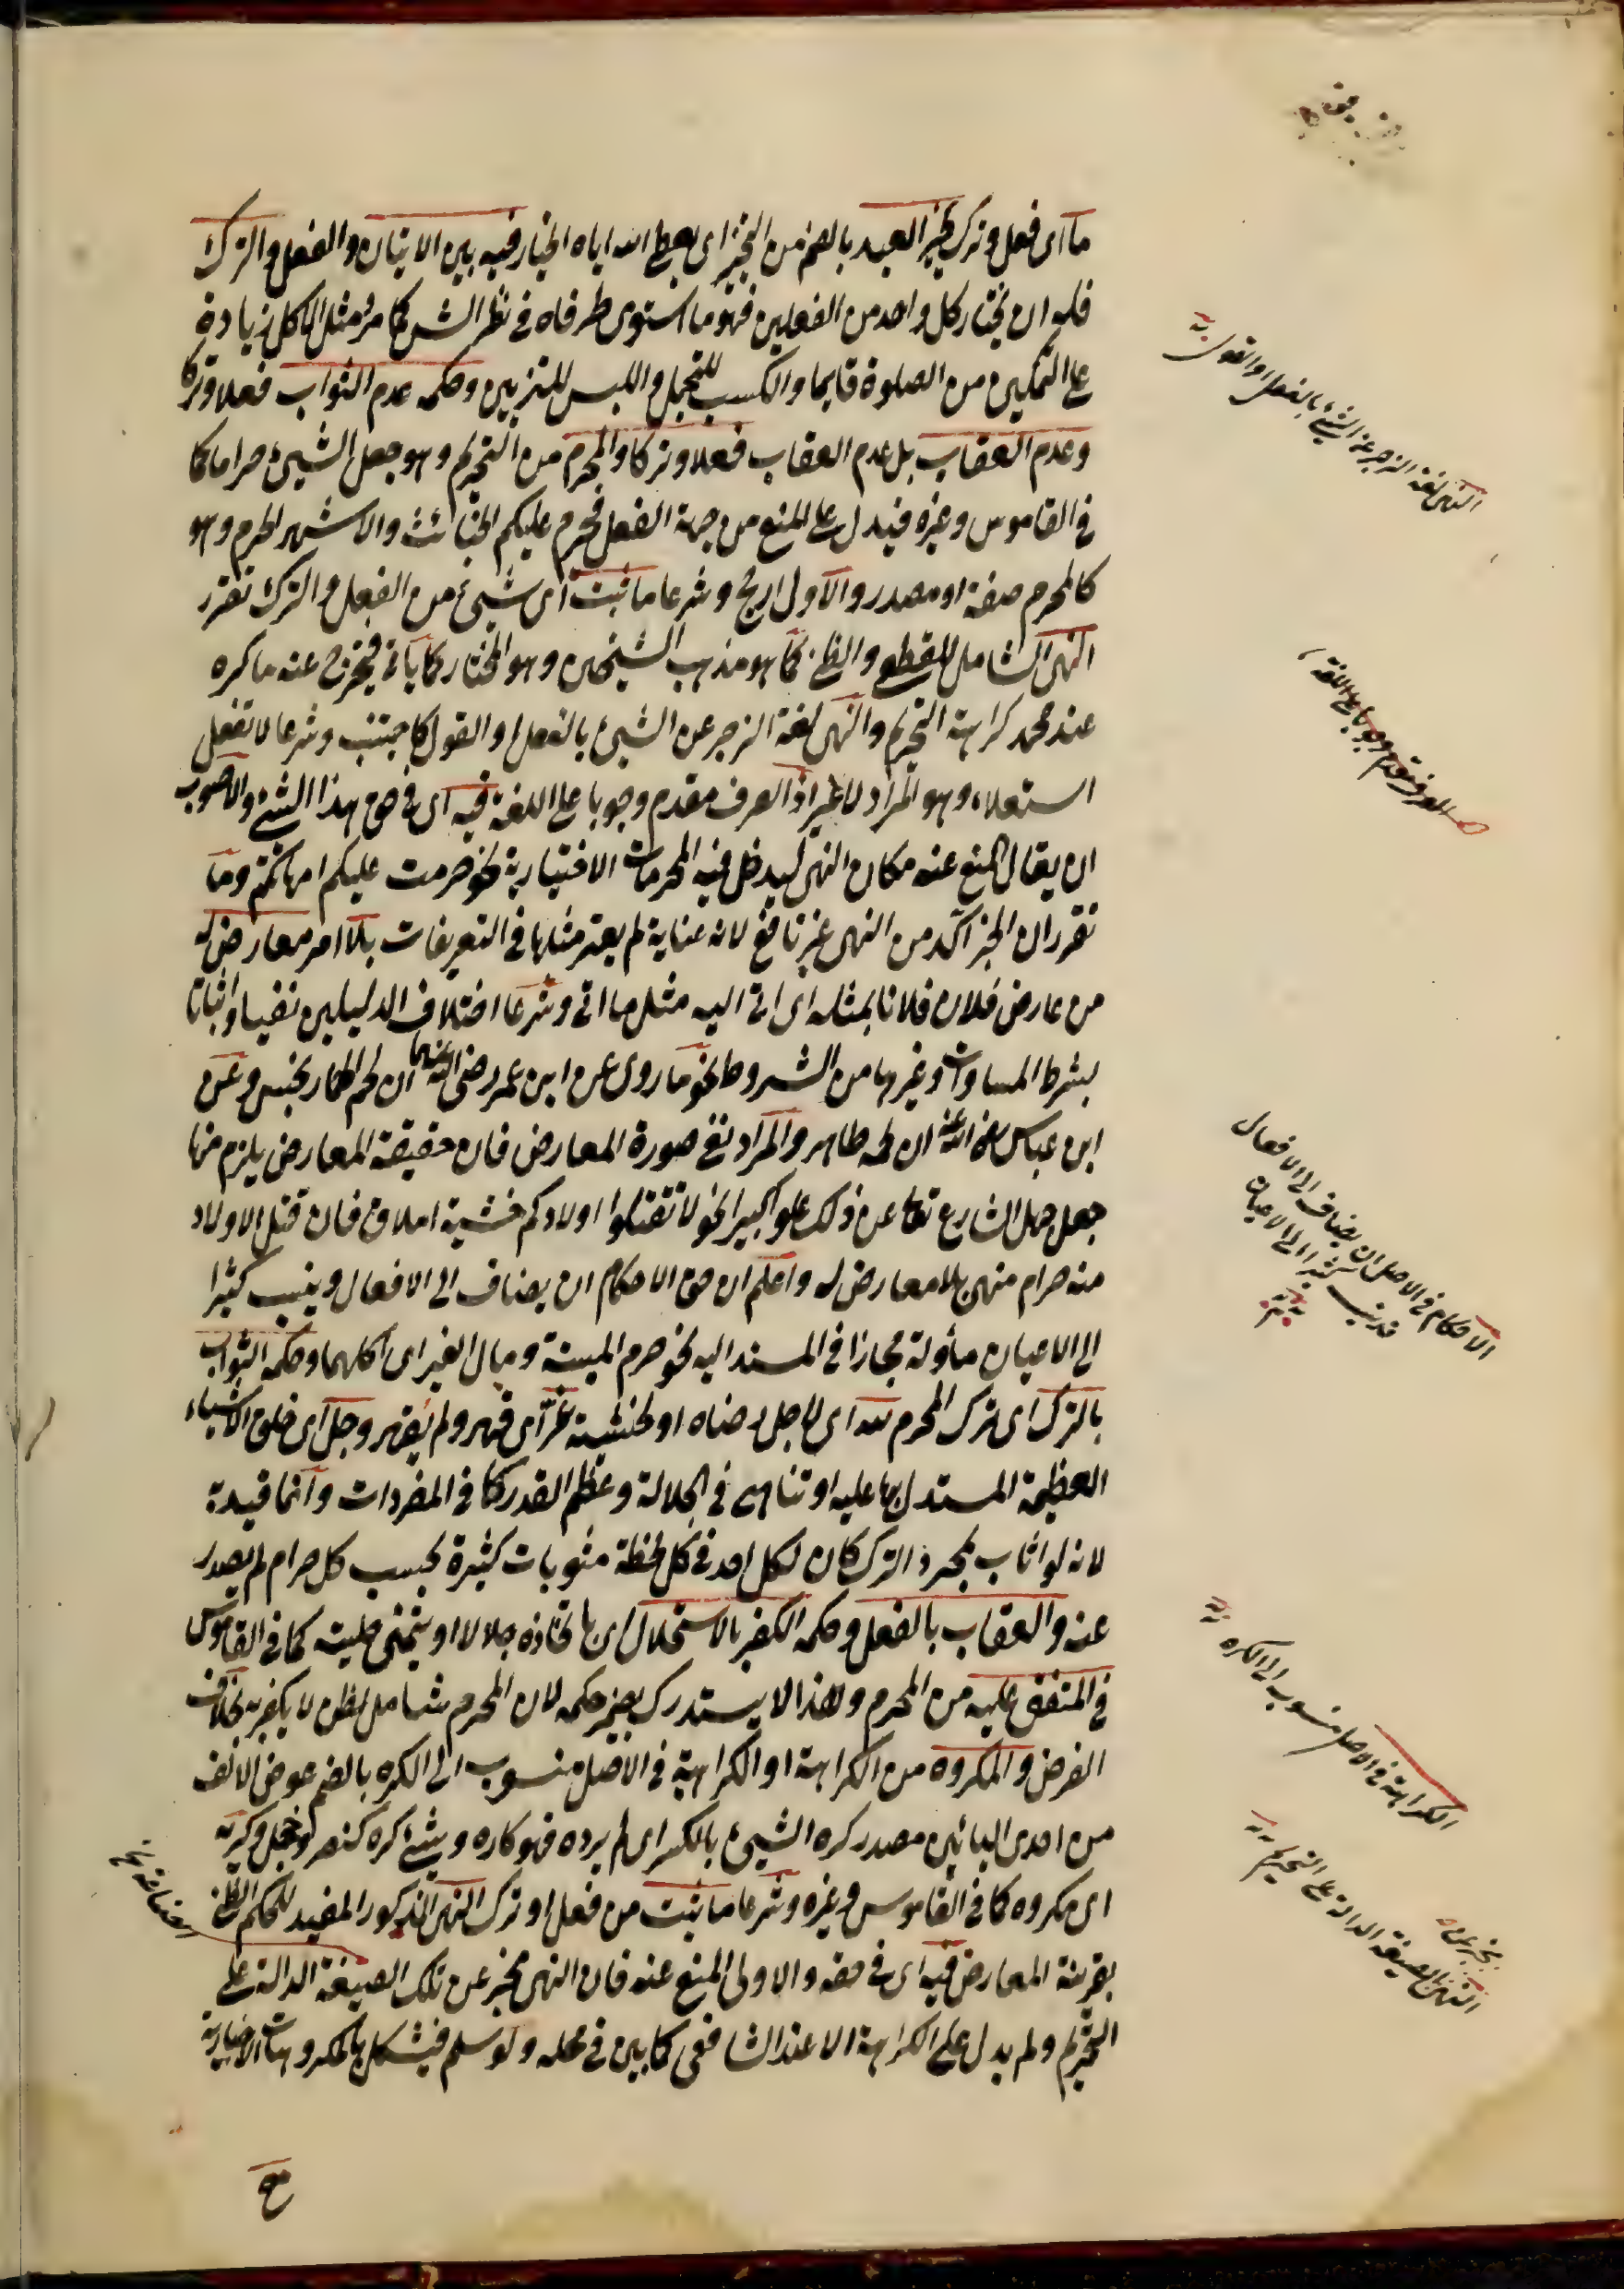 ما اى فعل وترك يخير العبد بالضم من التخيير اى يعطى الله اياه الخيار فيه بين الاتيان والفعل والترك
فله ان يختار كل واحد من الفعلين فهو ما استوى طرفاه فى نظر الشرع كما مر مثل الاكل زيادة
على التمكين من الصلوة قايما والكسب للتجمل واللبس للتزيين وحكمه عدم الثواب فعلا وتركا
وعدم العقاب بل عدم العقاب فعلا وتركا والمحرم من التحريم وهو جعل الشىء حراما كما
فى القاموس وغيره فيدل على المنع من جهة الفعل فحرم عليكم الخبائث والاشهر الحرم وهو
كالمحرم صفة او مصدر والاول ارجح وشرعا ما ثبت اى شىء من الفعل والترك تقرر
النهى الشامل للقطعى والظنى كما هو مذهب الشيخين وهو المختار كما يأتى فيخرج عنه ما كره
عند محمد كراهة التحريم والنهى لغة الزجر عن الشىء بالفعل او القول كاجتنب وشرعا لا تفعل
استعلاء وهو المراد لا غير اذ العرف مقدم وجوبا على اللغة فيه اى فى حق هذا الشىء والاصوب
ان يقال المنع عنه مكان النهى ليدخل فيه المحرمات الاختيارية نحو حرمت عليكم امهاتكم وما
تقرر ان الخبر آكد من النهى غير نافع لانه عناية لم يعتبر مثلها فى التعريفات بلا امر معارض له
من عارض فلان فلانا بمثله اى اتى اليه مثل ما اتى وشرعا اختلاف الدليلين نفيا واثباتا
بشرط المساواة وغيرها من الشروط نحو ما روى عن ابن عمر رضى الله عنهما ان لحم الحمار نجس وعن
ابن عباس رضى الله عنه ان لحمه طاهر والمراد نفى صورة المعارض فان حقيقة المعارض يلزم منها
جعل جهل الشارع تعالى عن ذلك علوا كبيرا نحو لا تقتلوا اولادكم خشية املاق فان قتل الاولاد
منه حرام منهى بلا معارض له واعلم ان حق الاحكام ان يضاف الى الافعال وينسب كثيرا
الى الاعيان مأولة مجازا فى المسند اليه نحو حرم الميتة ومال الغير اى اكلهما وحكمه الثواب
بالترك اى ترك المحرم لله اى لاجل رضاه او لخشيته عز اى قهر ولم يقهر وجل اى خلق الاشياء
العظيمة المستدل بها عليه او تناهى فى الجلالة وعظم القدر كما فى المفردات وانما قيده
لانه لو اثاب بمجرد الترك كان لكل احد فى كل لحظة مثوبات كثيرة بحسب كل حرام لم يصدر
عنه والعقاب بالفعل وحكمه الكفر بالاستحلال اى باتخاذه حلالا او يتمنى حليته كما فى القاموس
فى المتفق عليه من المحرم ولهذا لا يستدرك بعنبر حكمه لان المحرم شامل لظن لا يكفر به بخلاف
الفرض والمكروه من الكراهة او الكراهية فى الاصل منسوب الى الكره بالضم عوض الالف
من احدى اليائين مصدر كره الشىء بالكسر اى لم يرده فهو كاره وشىء كره كنصر وخجل وكريه
اى مكروه كما فى القاموس وغيره وشرعا ما ثبت من فعل او ترك النهى المذكور المفيد للحكم الظنى
بقرينة المعارض فيه اى فى حقه والاولى المنع عنه فان النهى مخبر عن تلك الصيغة الدالة على
التحريم ولم يدل على الكراهة الا عند الشافعى كما بين فى محله ولو سلم فيشكل بالمكروهات الاخبارية
النهى لغة الزجر عن الشىء بالفعل او القول
العرف مقدم وجوبا على اللغة
الاحكام فى الاصل ان يضاف الى الافعال
قد ينسب كثيرا الى الاعيان
الكراهية فى الاصل منسوب الى الكره
النهى مخبر عن الصيغة الدالة على التحريم